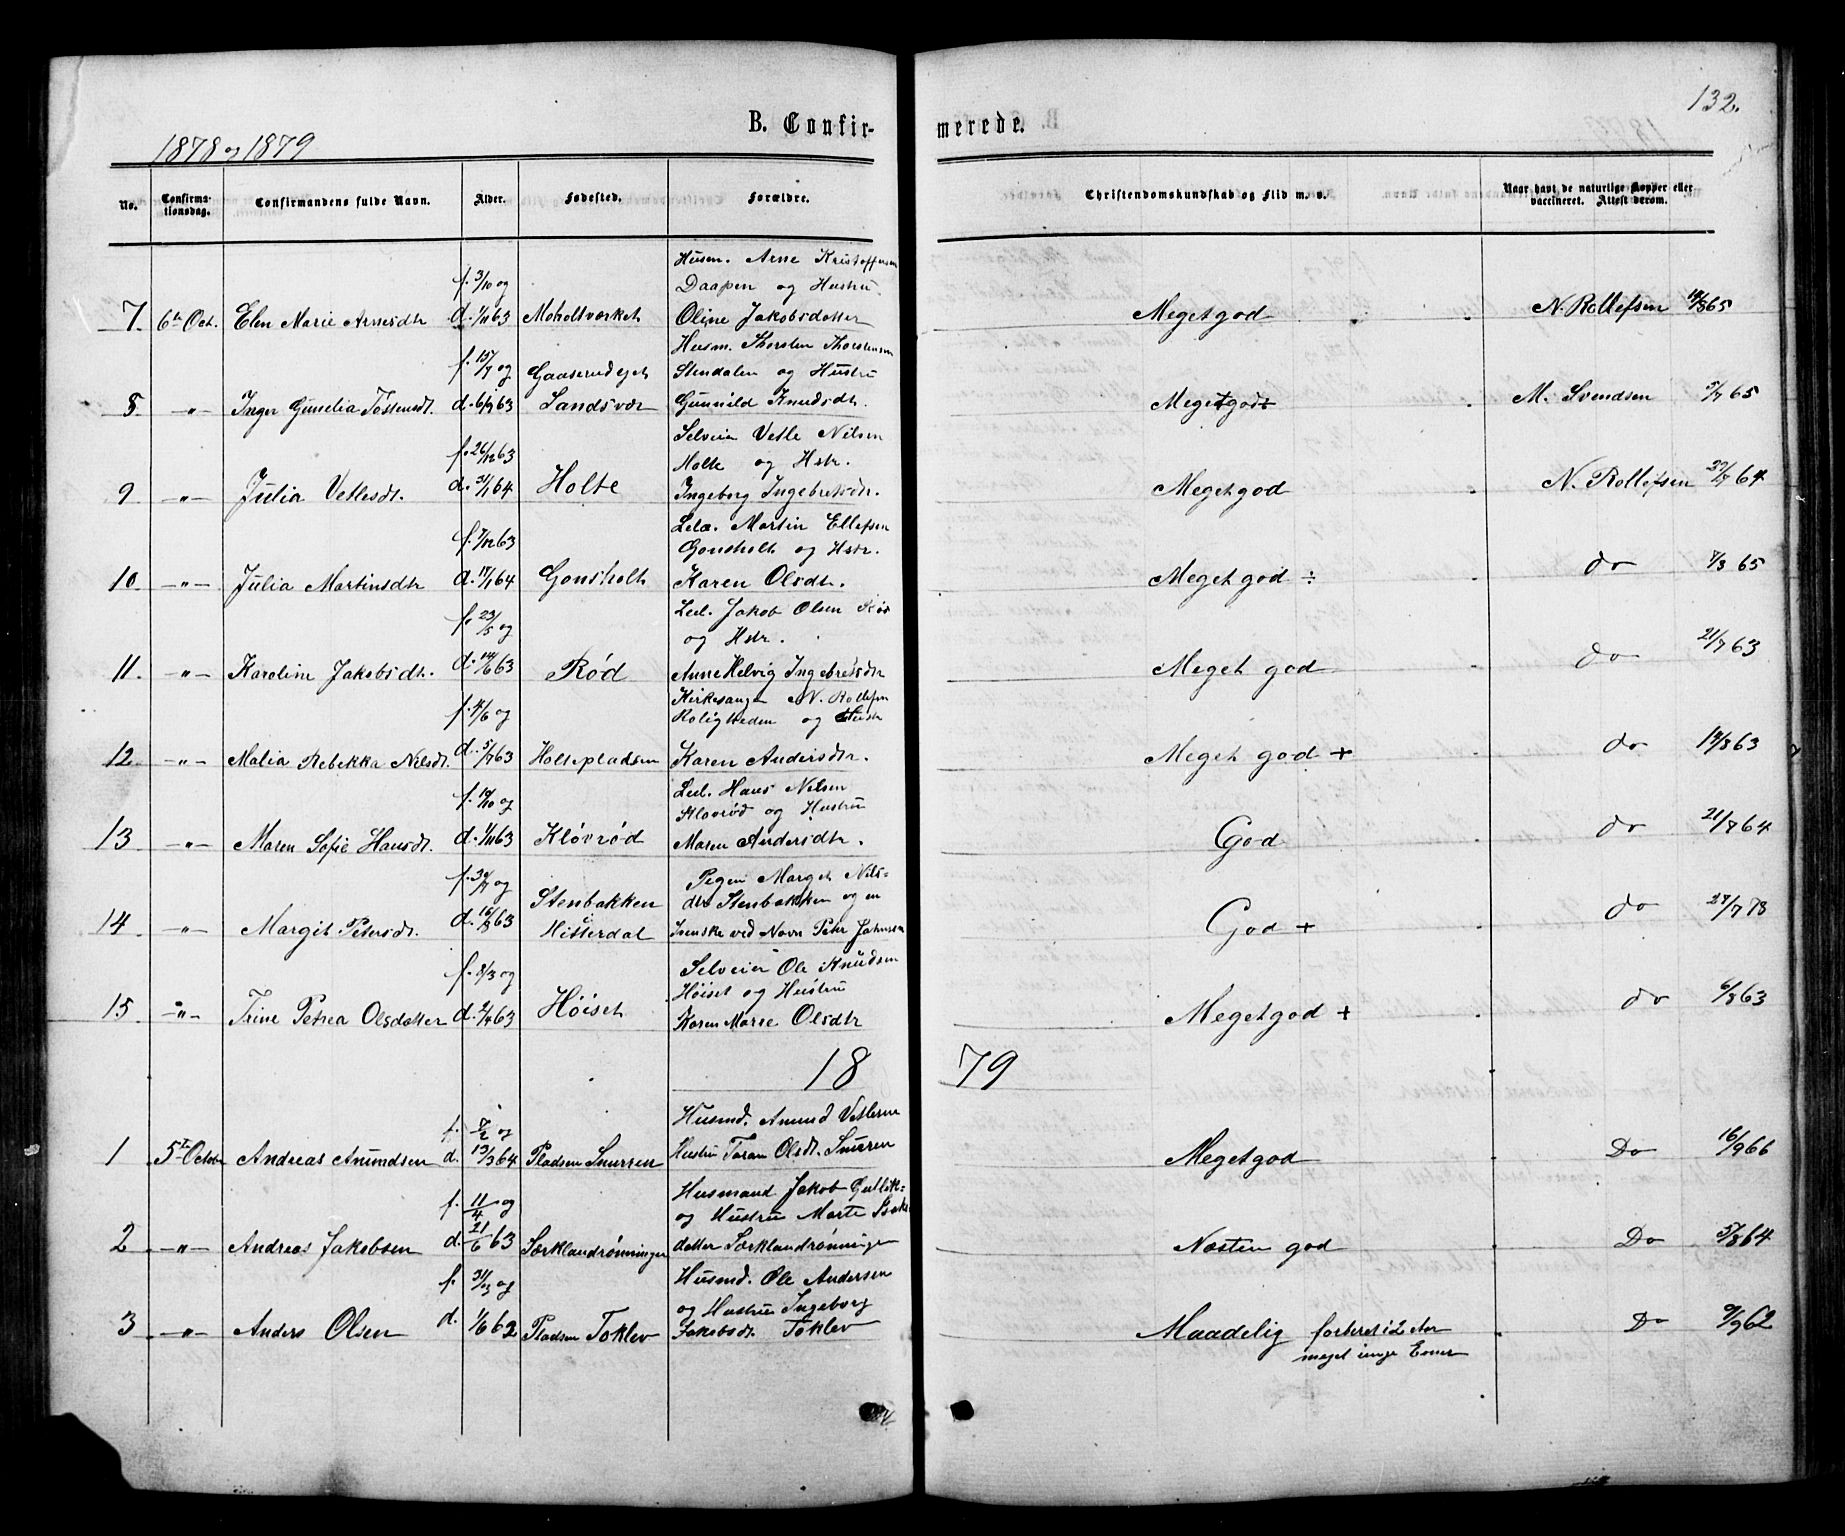 132.
B. Confirmerede.
1878 og 1879
No. Confirmationsdag. Confirmandens fulde Navn. Alder. Fødested. Forældre. Christendomskundskab og Flid m. v. Naar havt de naturlige Kopper eller vaccineret. Attest derom.
Husm. Arne Kristoffersen
f. 3/10 og Daapen og Hustru
7 6te Oct. Elen Marie Arnesdtr d. 1/11 63 Moholtværket Oline Jakobsdatter Meget god N. Rollefsen 14/8 65
Husm. Thorsten Thorstensen
f. 15/7 og Gaaserudejet Stendalen og Hustru
8 -"- Inger Gunelia Tostensdt. d. 6/9 63 Sandsvær Gunnild Knudsdtr. Meget god+ M. Svendsen 5/7 65
Selveier Vetle Nilsen
f. 26/12 63 Holte og Hstr.
9 -"- Julia Vetlesdt. d. 31/1 64 Holte Ingeborg Ingebretsdtr. Meget god N. Rollefsen 29/7 64
Leil. Martin Ellefsen
f. 7/12 63 Gonsholt og Hstr.
10 -"- Julia Martinsdtr d. 17/1 64 Gonsholt Karen Olsdtr. Meget god ÷ do 7/8 65
f. 23/5 og Leil. Jakob Olsen Rød
og Hstr.
11 -"- Karoline Jakobsdtr. d. 14/6 63 Rød Anne Helvig Ingebretsdtr Meget god do 21/7 63
Kirkesanger N. Rollefsen
f. 4/6 og Roligheden og Hustr
12 -"- Malia Rebekka Nilsdt. d. 5/7 63 Holtepladsen Karen Andersdtr. Meget god + do 14/8 63
Leil. Hans Nilsen
f. 10/10 og Kløvrød og Hustru
13 -"- Maren Sofie Hansdt. d. 1/11 63 Kløvrød Maren Andersdtr. God do 21/8 64
f. 30/7 og Pigen Marget Nils-
Stenbakken dtr Stenbakken og en
14 -"- Margit Petersdt. d. 16/8 63 Hitterdal Svenske ved Navn Petr Johnsen God + do 27/7 78
f. 8/3 og Selveier Ole Knudsen
Høiset og Hustru
15 -"- Trine Petrea Olsdatter d. 2/4 63 Høiset Karen Marie Olsdtr Meget god + do 6/8 63
1879
f. 7/2 og Husmd. Anund Vetlesen
1 5te Octobr Andreas Anundsen d. 13/3 64 Pladsen Snurren Hustru Taran Olsdt. Snurren Meget god Do 16/9 66
f. 11/4 og Husmand Jakob Gullik-
og Hustru Marte
2 -"- Andreas Jakobsen d. 21/6 63 Særklandrønningen datter Særklandrønningen Næsten god Do 5/8 64
f. 31/3 og Husmd. Ole Andersen
og Hustru Ingeborg
3 -"- Anders Olsen d. 1/6 62 Pladsen Toklev Jakobsdt. Toklev Maadelig forberet i 2 Aar Do 9/9 62
meget ringe Evner